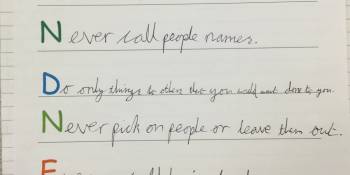 Never call people names.
Do only things to others that you would want done to you.
Never pick on people or leave them out.